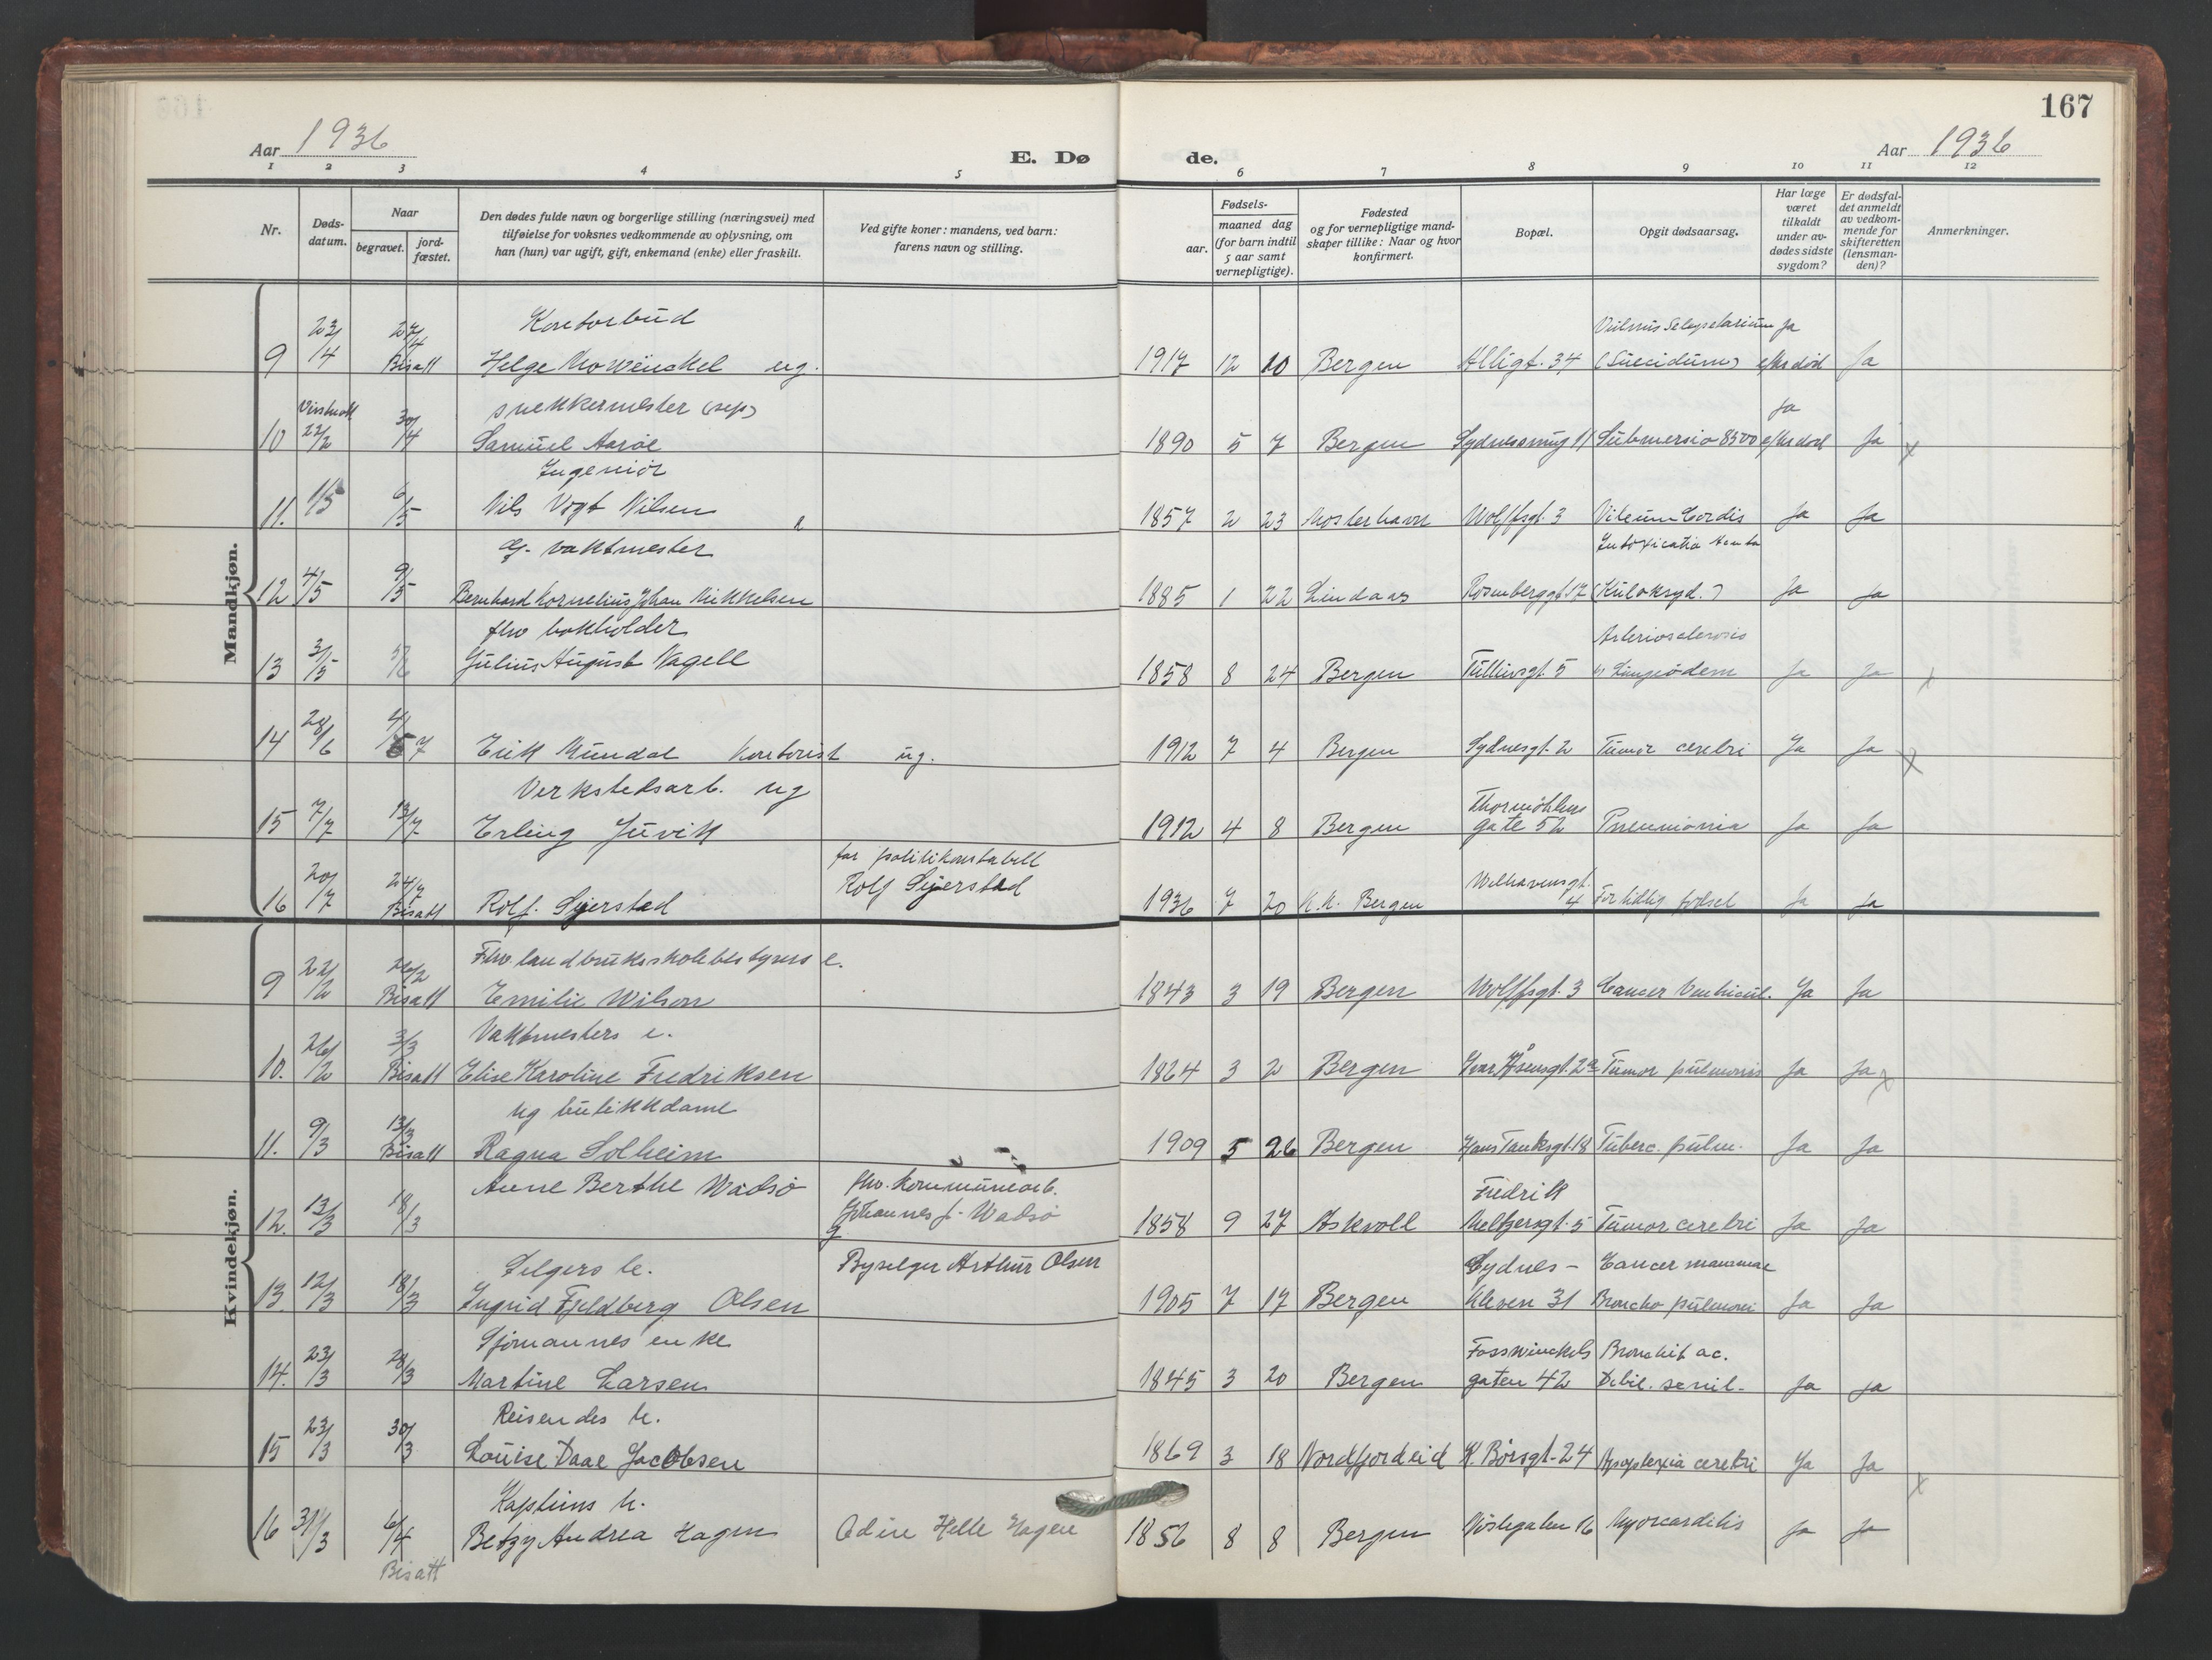 167
Aar 1936
E. Dø de.
Aar 1936
1 2 3 4 5 6 7 8 9 10 11 12
Nr.
Døds-datum.
Naar
begravet.
jord-fæstet.
Den dødes fulde navn og borgerlige stilling (næringsvei) med
tilføielse for voksnes vedkommende av oplysning, om
han (hun) var ugift, gift, enkemand (enke) eller fraskilt.
Ved gifte koner: mandens, ved barn:
farens navn og stilling.
Fødsels-
aar.
maaned dag
(for barn indtil
5 aar samt
vernepligtige).
Fødested
og for vernepligtige mand-
skaper tillike: Naar og hvor
konfirmert.
Bopæl.
Opgit dødsaarsag.
Har læge
været
tilkaldt
under av-
dødes sidste
sygdom?
Er dødsfal-
det anmeldt
av vedkom-
mende for
skifteretten
(lensman-
den)?
Anmerkninger.
Mandkjøn.
Kontorbud
9 23/4 27/4 Bisatt Helge Mowinckel ug. 1917 12 10 Bergen Alligt. 34 (Suicidum) Ja efter død Ja
snekkermester (sep)
10 22/2 30/4 Samuel Aarøe 1890 5 7 Bergen Submersio Ja efter død Ja x
Ingeniør
11. 1/5 6/5 Nils Vogt Nilsen e 1857 2 23 Mosterhavn Wolffsgt. 3 Vitium Cordis Ja Ja
vaktmester
12 4/5 9/5 Bernhard Kornelius Johan Mikkelsen 1885 1 22 Lindaas Rosenberggt 17 Intoxicatio (Kuloksyd.) Ja Ja
fhv bokholder
13 3/5 Julius August Nagell 1858 8 24 Bergen Tulliusgt. 5 Arteriosclerosis Lungeødem Ja Ja x
14 28/6 4/7 Erik Mundal Kontorist ug. 1912 7 4 Bergen Sydnesgt. 2 Tumor cerebri Ja Ja x
Verkstedsarb. ug
15 7/7 13/7 Erling Juvik 1912 4 8 Bergen Thormøhlens gate 52 Pneumonia Ja Ja
far politikonstabell
16 20/7 24/7 Bisatt Rolf. Sejerstad Rolf Sejerstad 1936 7 20 K.K. Bergen Welhavensgt. 4 For tidlig fødsel Ja Ja
Kvindekjøn.
Fhv landbruksskolebestyrers e.
9 22/2 26/2 Bisatt Emilie Wilson 1843 3 19 Bergen Wolffsgt. 3 Cancer Ventricul. Ja Ja
Vaktmesters e.
10. 26/2 3/3 Bisatt Elise Karoline Fredriksen 1864 3 2 Bergen Ivar Åsensgt. 2a Tumor pulmonis Ja Ja x
ug butikkdame
11. 9/3 13/3 Bisatt Ragna Solheim 1909 5 26 Bergen Hans Tanksgt. 18 Tuberc. pulm. Ja Ja
12. 13/3 18/3 Anne Berthe Wadsö fhv. kommunearb. Johannes J. Wadsö g 1858 9 27 Askvoll Fredrik Meltzersgt. 5 Tumor cerebri Ja Ja
Selgers h.
13. 12/3 18/3 Ingrid Fjeldberg Olsen Byselger Arthur Olsen 1905 7 17 Bergen Sydnes-kleven 31 Cancer mammae Broncho pulmoni Ja Ja
Sjømannes enke
14. 23/3 28/3 Martine Larsen 1845 3 20 Bergen Fosswinckels gaten 42 Bronchit ac. Debil. senil. Ja Ja
Reisendes h.
15 23/3 30/3 Louise Daae Jacobsen 1869 3 18 Nordfjordeid K. Børsgt. 24 Apoplexia cerebri Ja Ja x
Kapteins h.
16 31/3 6/4 Bisatt Betzy Andrea Hagen Odin Helle Hagen 1856 8 8 Bergen Nøstegaten 16 Myocarditis Ja Ja